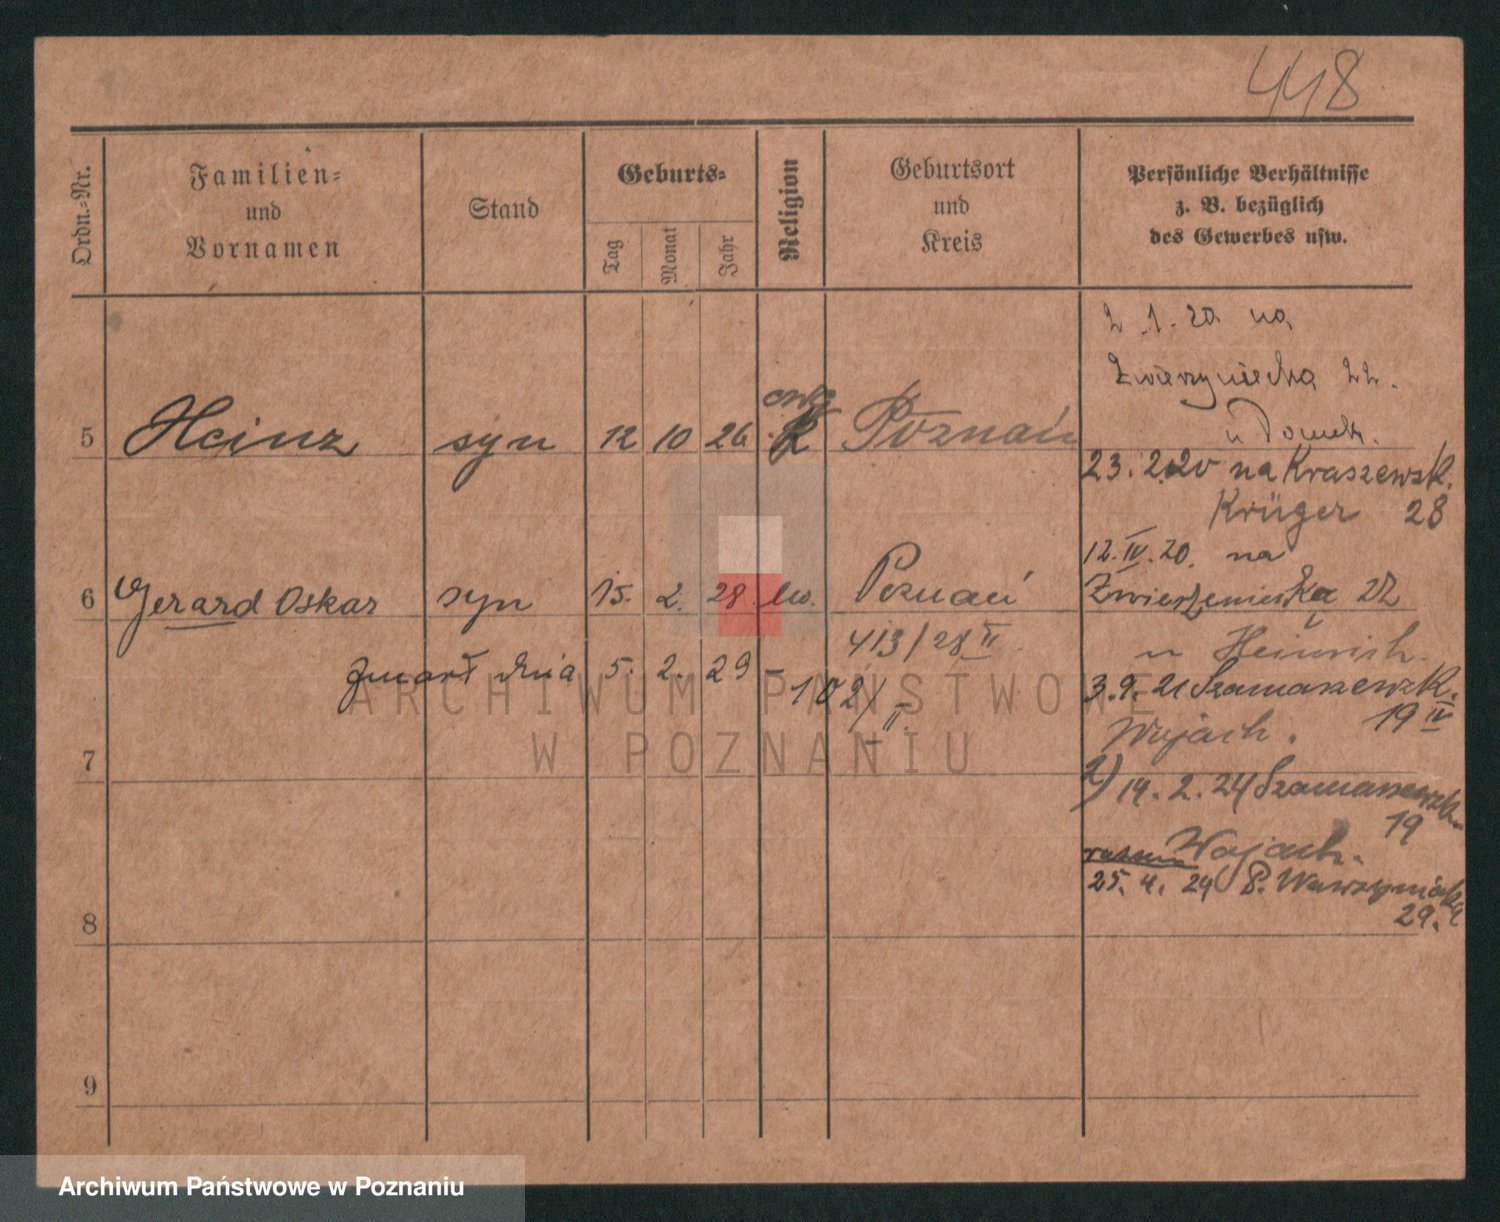 448
Ordn.-Nr.
Familien-
und
Vornamen
Stand
Geburts-
Tag
Monat
Jahr
Religion
Geburtsort
und
Kreis
Persönliche Verhältnisse
z. B. bezüglich
des Gewerbes usw.
2.1.20 na
Zwierzyniecka 22.
u Tomek.
5 Heinz syn 12 10 26 ewg Poznań
23.2.20 na Kraszewsk.
Krüger 28
12.IV.20. na
6 Gerard Oskar syn 15. 2. 28. ew. Poznań
Zwierzyniecka 22
413/28 II
u Heinrich.
zmarł dnia 5. 2. 29 – 102/II
3.9.21 Szamarzewsk.
19 IV
Wojach.
7
2) 14.2.24 Szamarzewsk.
19
Wojach.
25. 4. 24 P. Wawrzyniaka
29.
8
9
ARCHIWUM PAŃSTWOWE
W POZNANIU
Archiwum Państwowe w Poznaniu